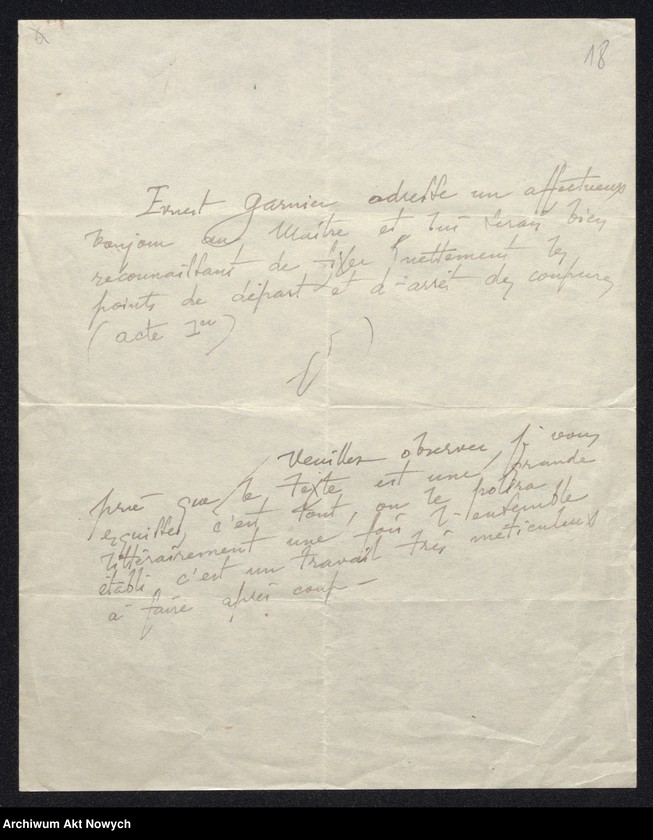 18
Ernest Garnier adresse un affectueux
bonjour au Maître et lui serait bien
reconnaissant de fixer nettement les
points de départ et d'arrêt des coupures
(acte Ier)
Veuillez observer, je vous
prie que le Texte est une grande
esquisse, c'est tout, on le polira
littérairement une fois l'ensemble
établi c'est un travail très méticuleux
à faire après coup –
Archiwum Akt Nowych